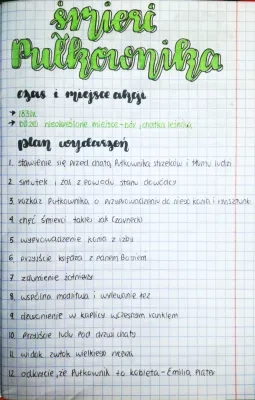 śmierć
Pułkownika
czas i miejsce akcji
→ 1831r.
→ bliżej nieokreślone miejsce - bór, chatka leśnika
plan wydarzeń
1. stawienie się przed chatą Pułkownika strzelców i tłumu ludzi
2. smutek i żal z powodu stanu dowódcy
3. rozkaz Pułkownika o przyprowadzeniu do niego konia i rynsztunku
4. chęć śmierci takiej jak Czarnecki
5. wyprowadzenie konia z izby
6. przyjście księdza z Panem Bożym
7. zdumienie żołnierzy
8. wspólna modlitwa i wylewanie łez
9. dzwonienie w kaplicy wczesnym rankiem
10. przyjście ludu pod drzwi chaty
11. widok zwłok wielkiego
12. odkrycie, że Pułkownik to kobieta - Emilia Plater